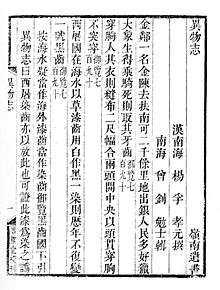 異物志
嶺南遺書
漢南海 楊 孚 孝元撰
南海 曾 釗 勉士輯
金鄰一名金陳去扶南可二千餘里地出銀人民多好獵
大象生得乘騎死則取其牙齒御覽七百九十
穿胸人其衣則縫布二尺幅合兩頭開中央以頭貫穿胸
不突穿御覽七百九十
西屠國在海水以草漆齒用白作黑一染則歷年不復變
一號黑齒御覽七百九十
按海水疑當作海外漆齒當作染齒御覽黑齒國下引
異物志曰西屠染齒亦以放此也可證此條爲染之譌
異物志